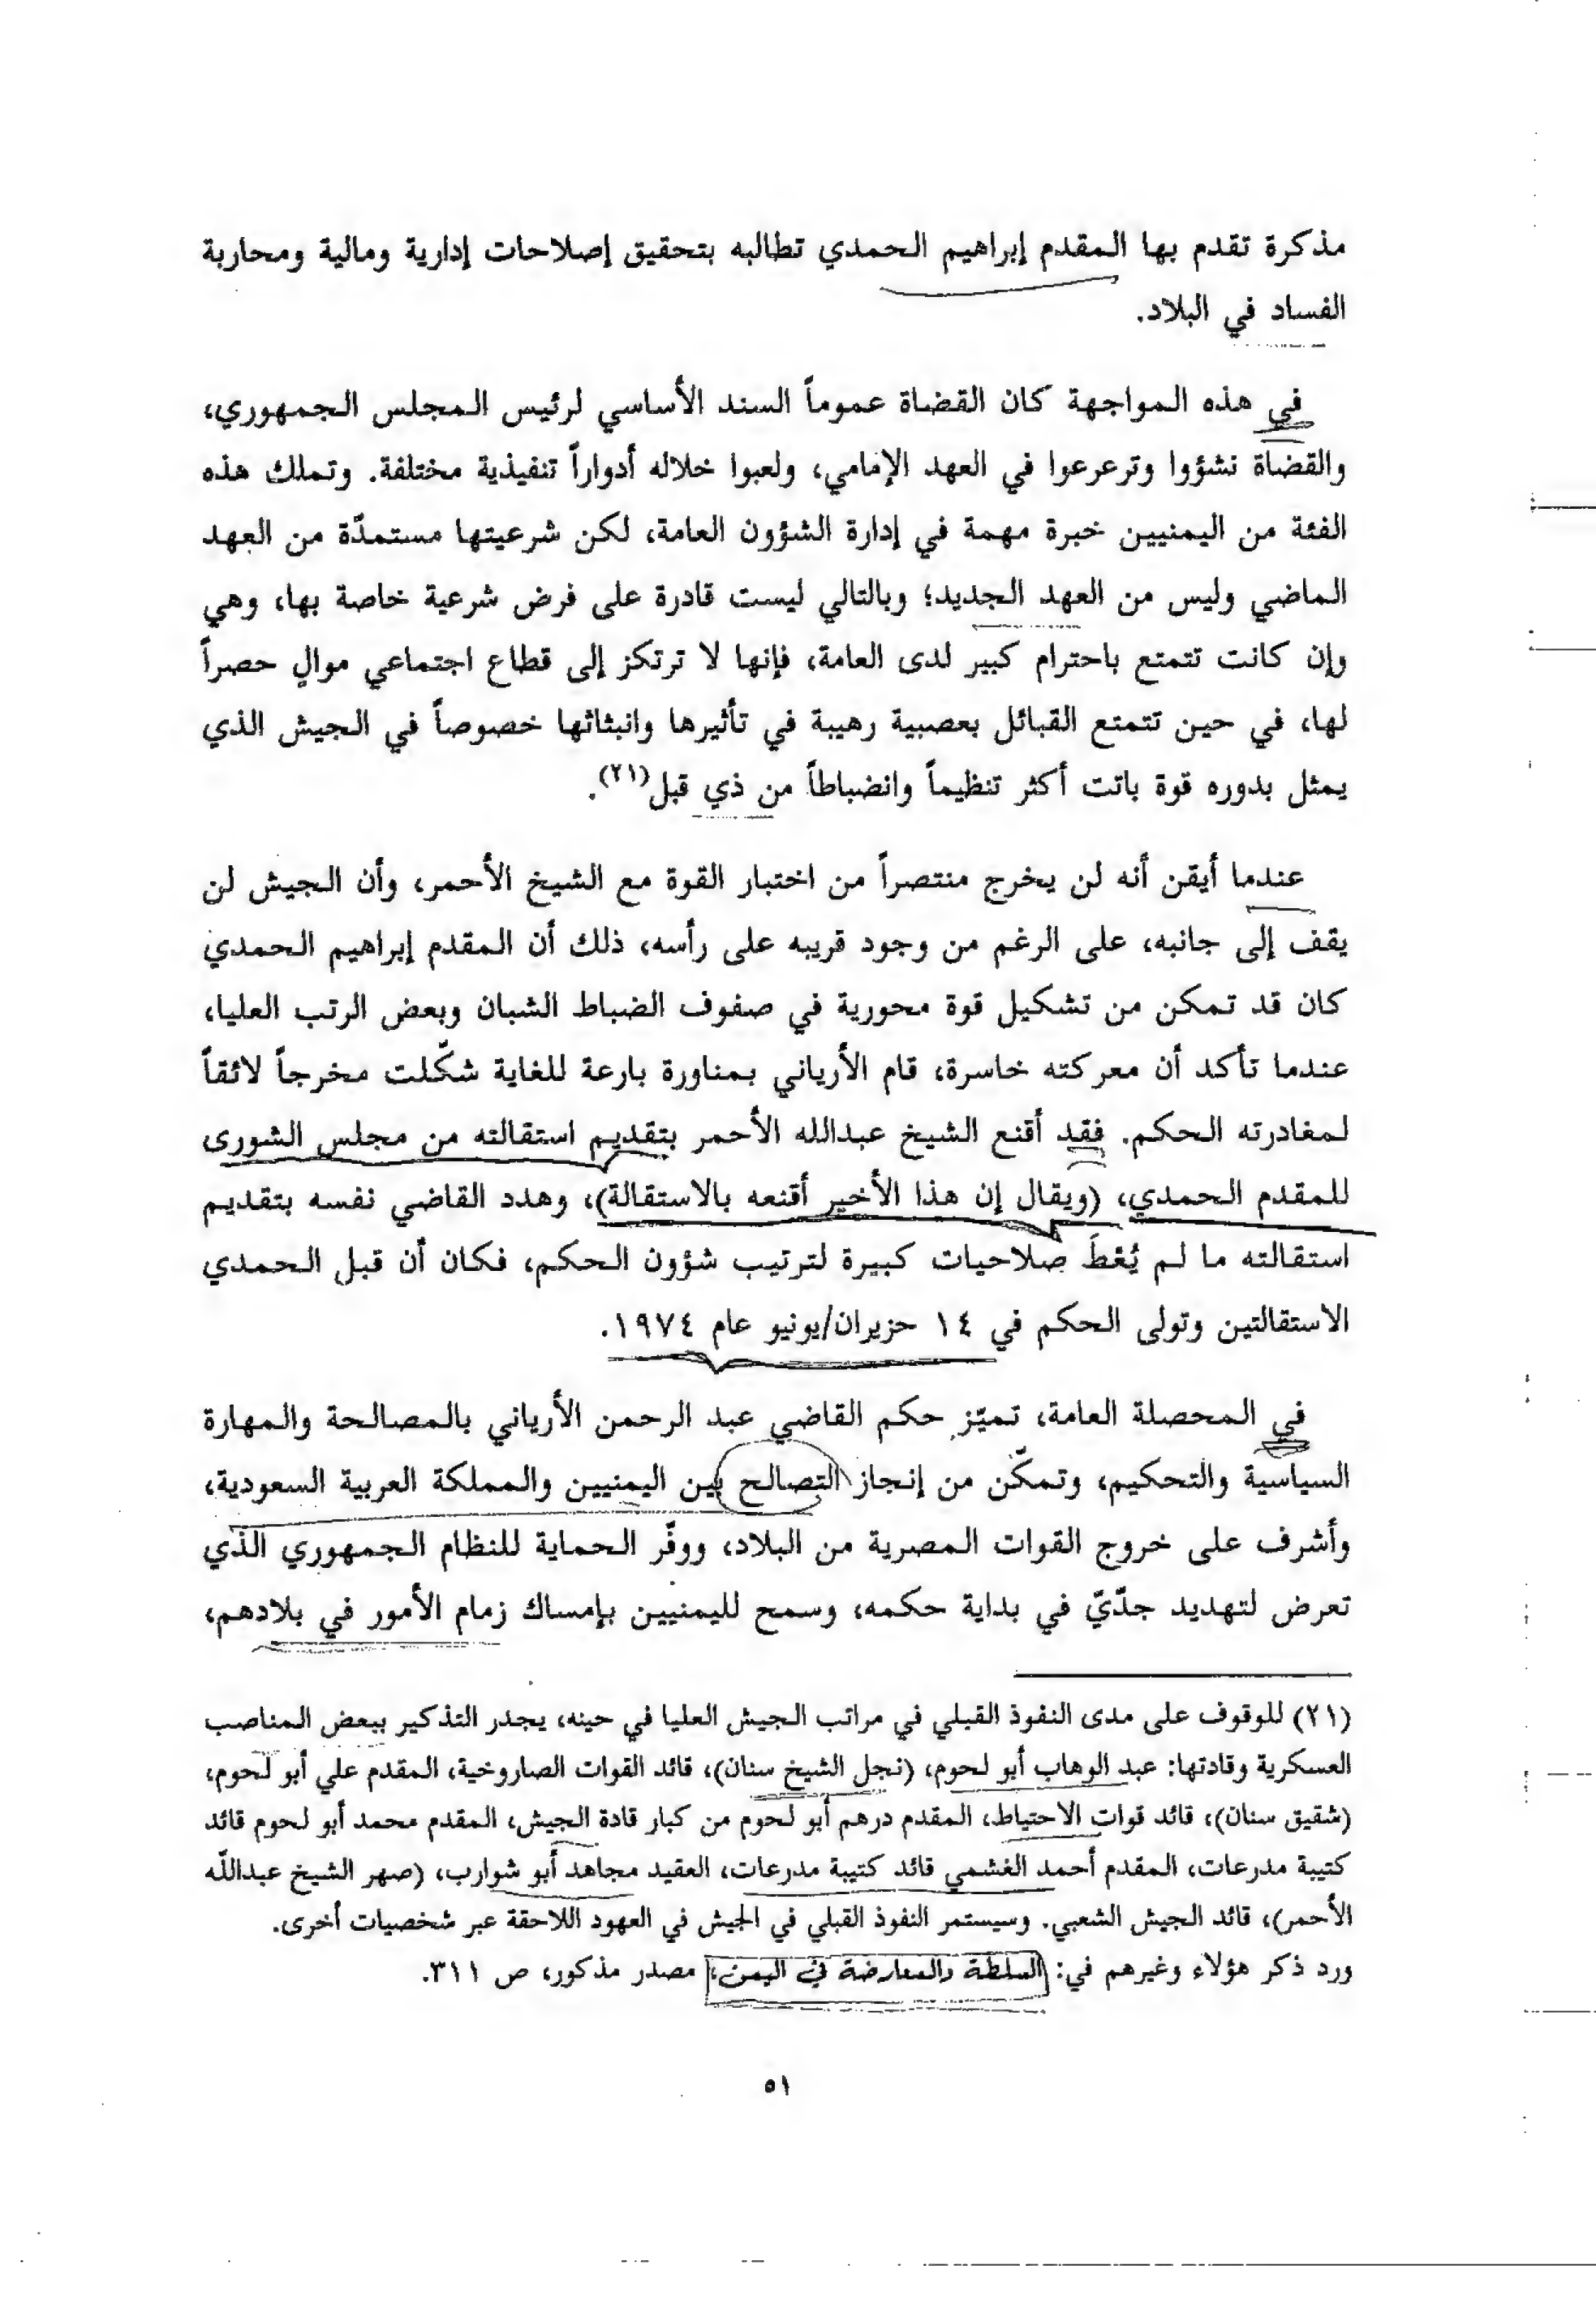 مذكرة تقدم بها المقدم إبراهيم الحمدي تطالبه بتحقيق إصلاحات إدارية ومالية ومحاربة
الفساد في البلاد.
في هذه المواجهة كان القضاة عموماً السند الأساسي لرئيس المجلس الجمهوري،
والقضاة نشؤوا وترعرعوا في العهد الإمامي، ولعبوا خلاله أدواراً تنفيذية مختلفة. وتملك هذه
الفئة من اليمنيين خبرة مهمة في إدارة الشؤون العامة، لكن شرعيتها مستمدّة من العهد
الماضي وليس من العهد الجديد؛ وبالتالي ليست قادرة على فرض شرعية خاصة بها، وهي
وإن كانت تتمتع باحترام كبير لدى العامة، فإنها لا ترتكز إلى قطاع اجتماعي موالٍ حصراً
لها، في حين تتمتع القبائل بعصبية رهيبة في تأثيرها وانبثاثها خصوصاً في الجيش الذي
يمثل بدوره قوة باتت أكثر تنظيماً وانضباطاً من ذي قبل(٢١).
عندما أيقن أنه لن يخرج منتصراً من اختبار القوة مع الشيخ الأحمر، وأن الجيش لن
يقف إلى جانبه، على الرغم من وجود قريبه على رأسه، ذلك أن المقدم إبراهيم الحمدي
كان قد تمكن من تشكيل قوة محورية في صفوف الضباط الشبان وبعض الرتب العليا،
عندما تأكد أن معركته خاسرة، قام الأرياني بمناورة بارعة للغاية شكّلت مخرجاً لائقاً
لمغادرته الحكم. فقد أقنع الشيخ عبدالله الأحمر بتقديم استقالته من مجلس الشورى
للمقدم الحمدي، (ويقال إن هذا الأخير أقنعه بالاستقالة)، وهدد القاضي نفسه بتقديم
استقالته ما لم يُعْطَ صلاحيات كبيرة لترتيب شؤون الحكم، فكان أن قبل الحمدي
الاستقالتين وتولى الحكم في ١٤ حزيران/يونيو عام ١٩٧٤.
في المحصلة العامة، تميّز حكم القاضي عبد الرحمن الأرياني بالمصالحة والمهارة
السياسية والتحكيم، وتمكّن من إنجاز التصالح بين اليمنيين والمملكة العربية السعودية،
وأشرف على خروج القوات المصرية من البلاد، ووفّر الحماية للنظام الجمهوري الذي
تعرض لتهديد جدّيّ في بداية حكمه، وسمح لليمنيين بإمساك زمام الأمور في بلادهم،
(٢١) للوقوف على مدى النفوذ القبلي في مراتب الجيش العليا في حينه، يجدر التذكير ببعض المناصب
العسكرية وقادتها: عبد الوهاب أبو لحوم، (نجل الشيخ سنان)، قائد القوات الصاروخية، المقدم علي أبو لحوم،
(شقيق سنان)، قائد قوات الاحتياط، المقدم درهم أبو لحوم من كبار قادة الجيش، المقدم محمد أبو لحوم قائد
كتيبة مدرعات، المقدم أحمد الغشمي قائد كتيبة مدرعات، العقيد مجاهد أبو شوارب، (صهر الشيخ عبداللّه
الأحمر)، قائد الجيش الشعبي. وسيستمر النفوذ القبلي في الجيش في العهود اللاحقة عبر شخصيات أخرى.
ورد ذكر هؤلاء وغيرهم في: السلطة والمعارضة في اليمن، مصدر مذكور، ص ٣١١.
٥١